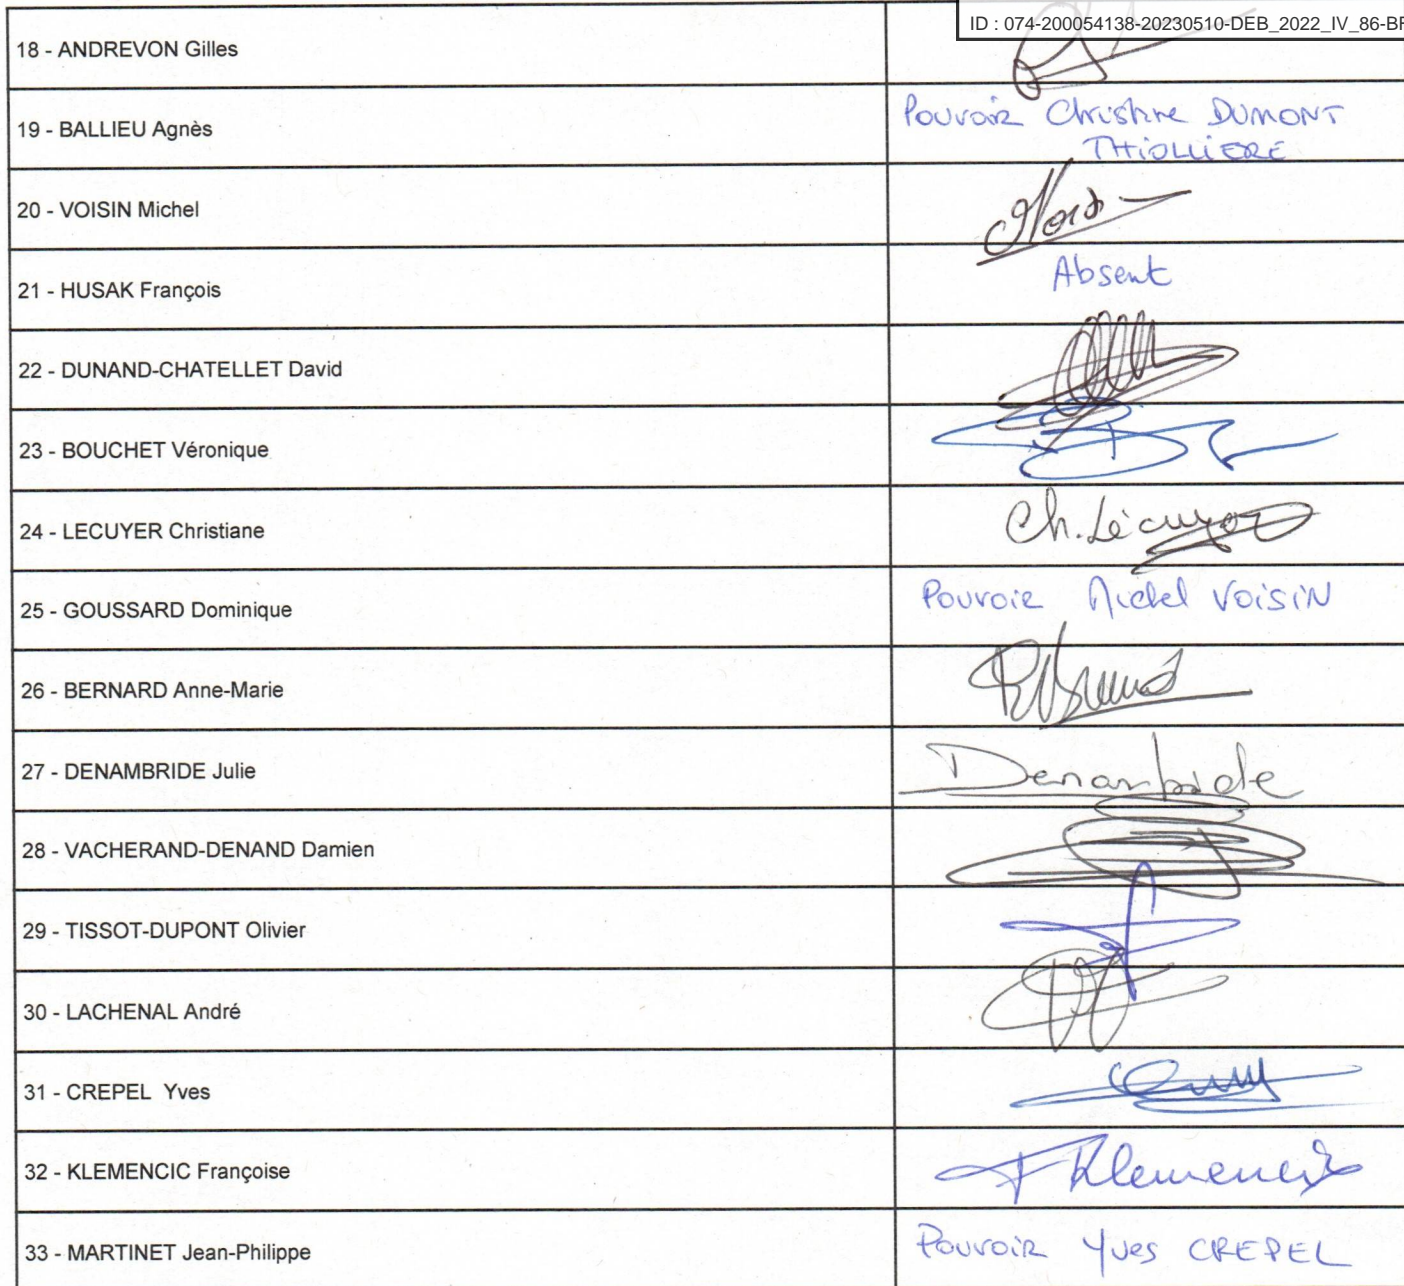 ID : 074-200054138-20230510-DEB_2022_IV_86-BF
18 - ANDREVON Gilles
19 - BALLIEU Agnès
Pouvoir Christine DUMONT
THIOLLIERE
20 - VOISIN Michel
21 - HUSAK François
Absent
22 - DUNAND-CHATELLET David
23 - BOUCHET Véronique
24 - LECUYER Christiane
Ch. Lécuyer
25 - GOUSSARD Dominique
Pouvoir Michel VOISIN
26 - BERNARD Anne-Marie
27 - DENAMBRIDE Julie
Denambride
28 - VACHERAND-DENAND Damien
29 - TISSOT-DUPONT Olivier
30 - LACHENAL André
31 - CREPEL Yves
32 - KLEMENCIC Françoise
F Klemencic
33 - MARTINET Jean-Philippe
Pouvoir Yves CREPEL